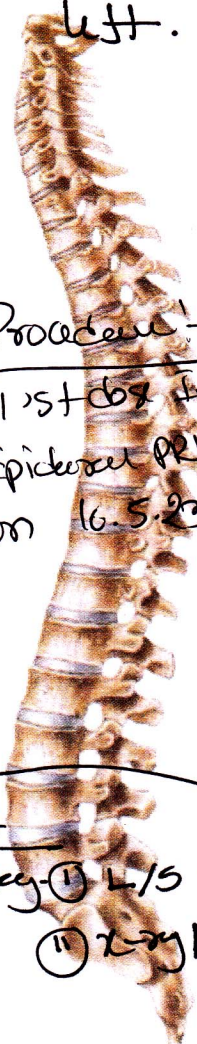 left.
Procedure:-
1st dose
Epidural PR
on 16.5.23
(i) L/S
(ii) x-ray